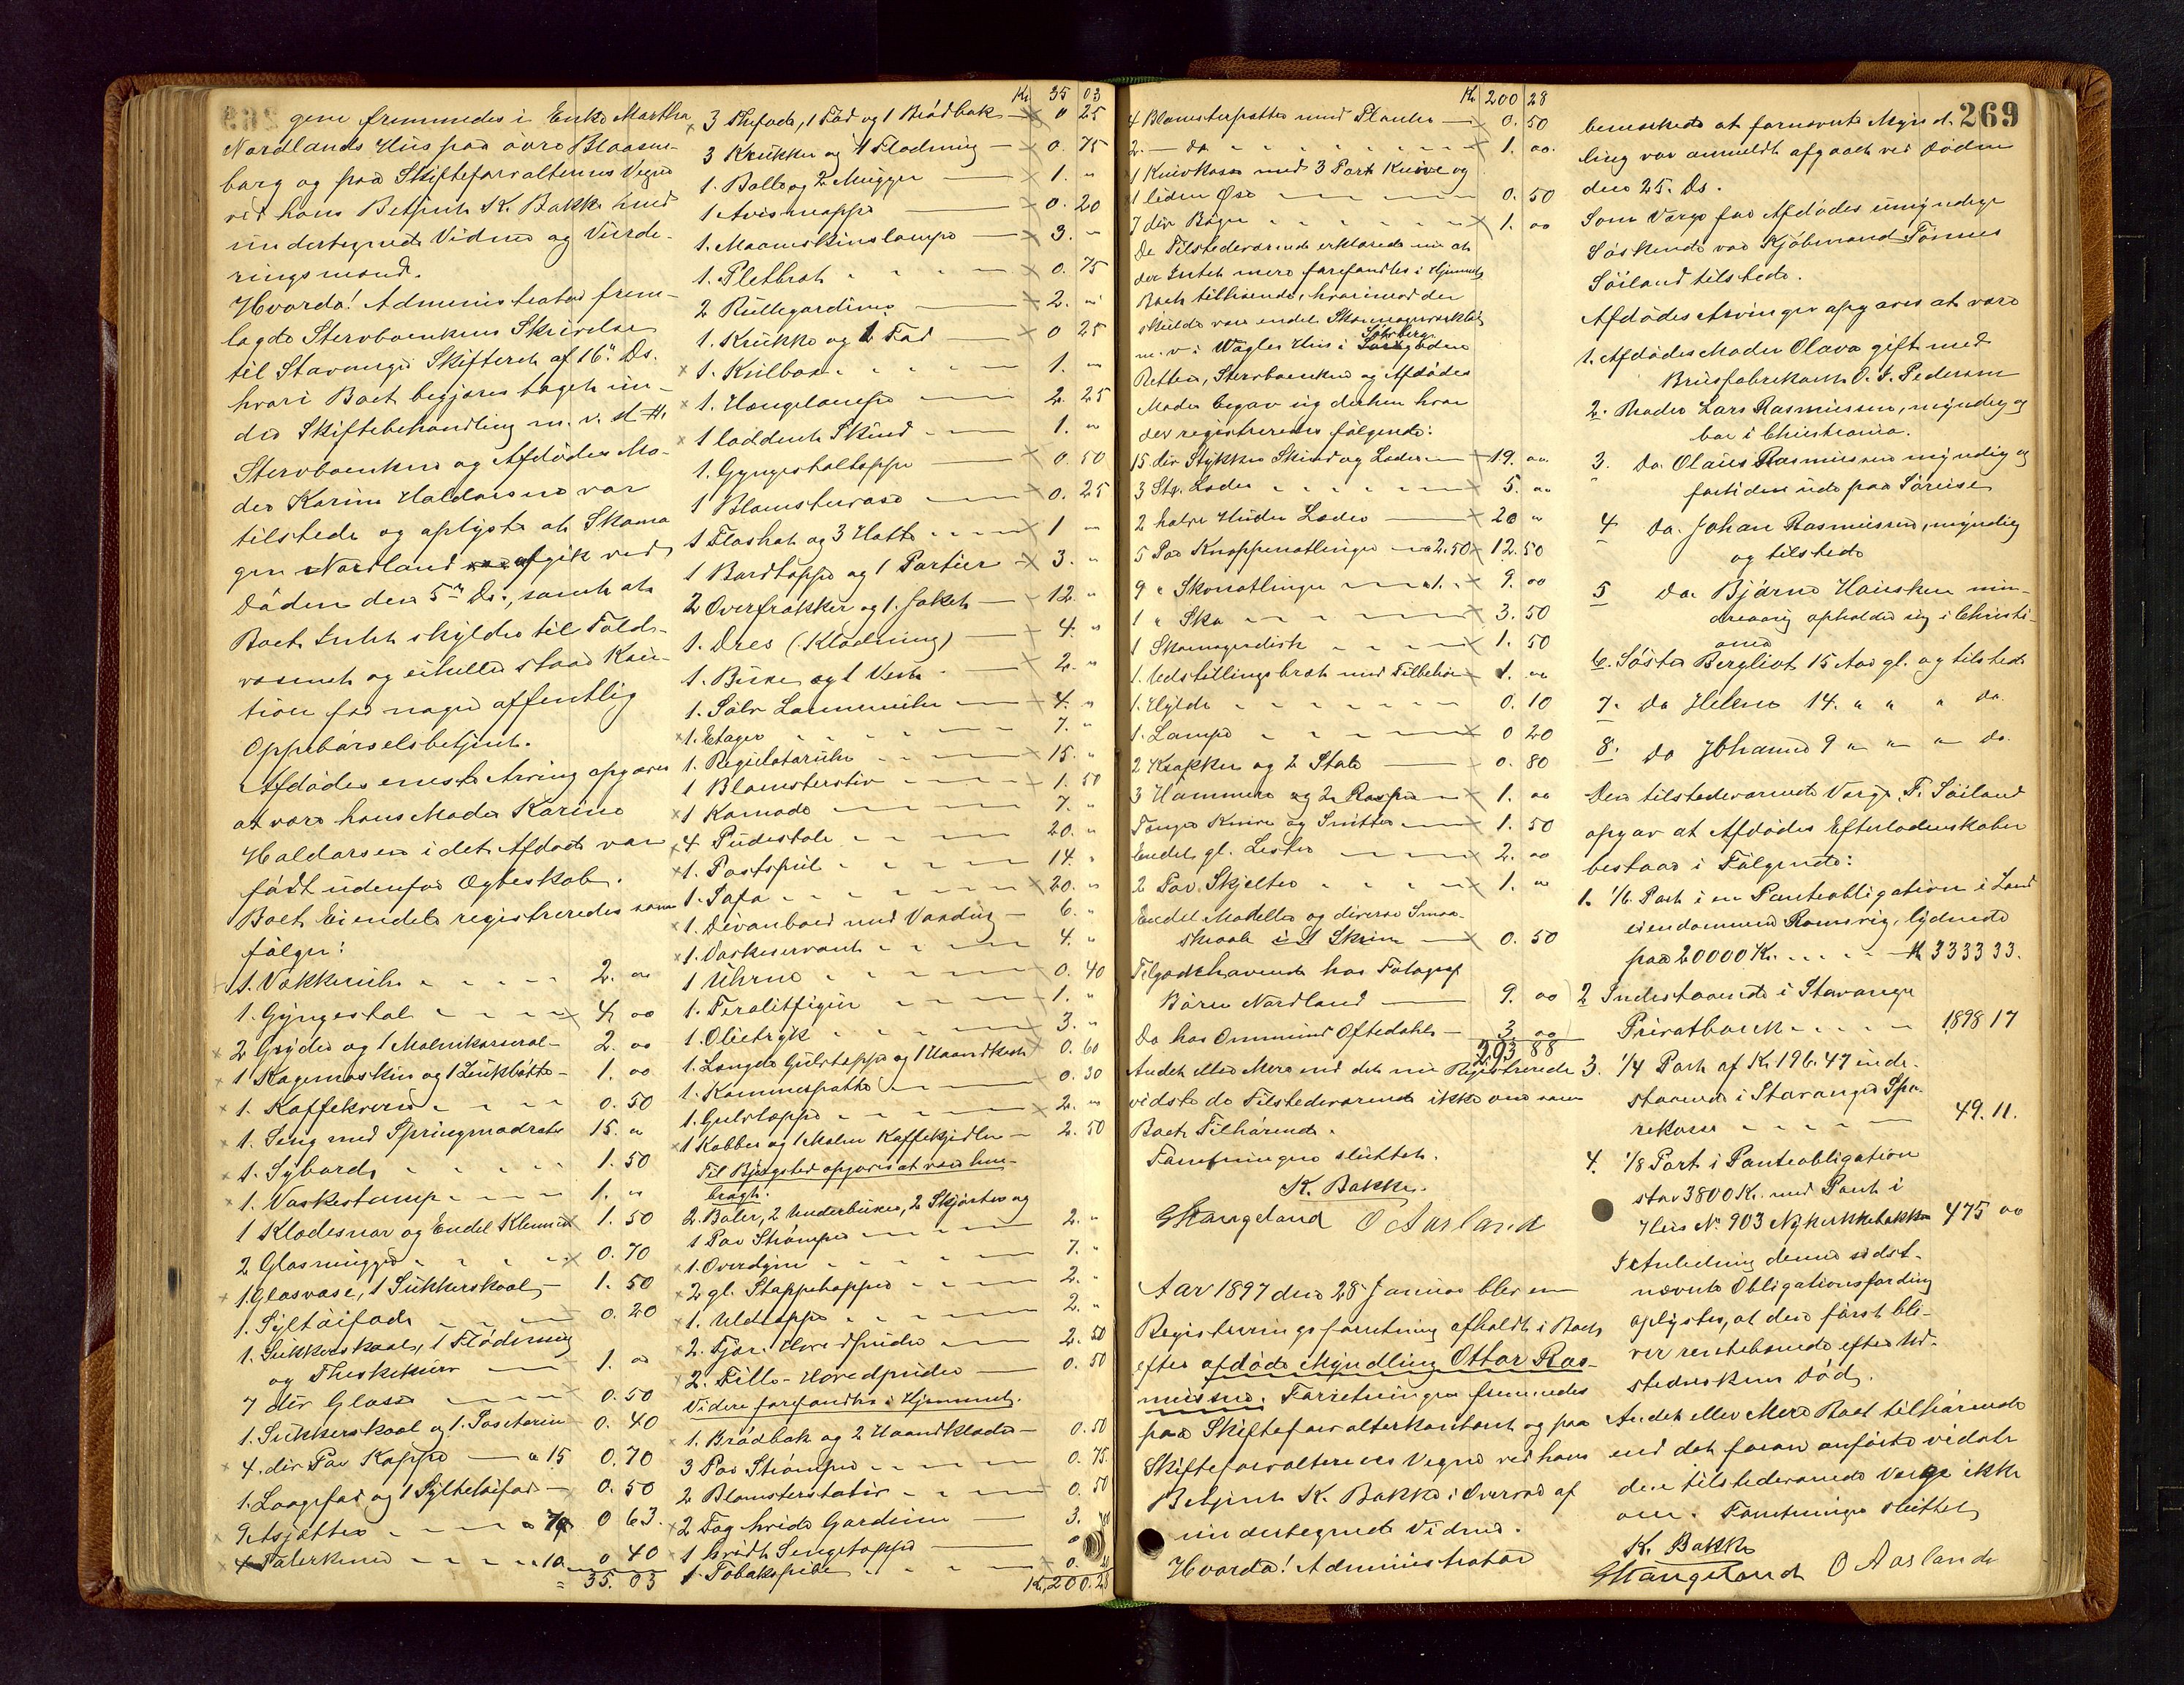 gene fremmedes i Enke Martha
Nordlands Hus paa øvre Blaasen-
borg og paa Skifteforvalterens Vegne
ved hans Betjent K. Bakke med
undertegnede Vidne og Vurde-
ringsmænd.
Hvorda! Administrator frem-
lagde Stervboenkens Skrivelse
til Stavanger Skifteret af 16de Ds.
hvori Boet begjæres taget un-
der Skiftebehandling m. v.
Stervboenken og Afdødes Mo-
der Karine Haldorsen var
tilstede og oplyste at Skoma
ger Nordland afgik ved
Døden den 5te Ds., samt at
Boet Intet skylder til Told-
væsenet og eiheller staar Kau-
tion for nogen offentlig
Oppebørselsbetjent.
Afdødes eneste Arving opgaves
at være hans Moder Karine
Haldorsen idet Afdøde var
født udenfor Ægteskab.
Boets Eiendele registreredes som
følger:
1. Vækkeruhr 2. 00
1. Gyngestol 4 00
2 Gryder og 1 Malmkasserol 2. 00
1 Kagemaskin og 1 Zinkbøtte 1. 00
1. Kaffekværn 0. 50
1. Seng med Springmadrats 15. "
1. Sybord 1. 50
1. Vaskestamp 1. "
1 Klædesnor og Endel Klemmer 1. 50
2 Glasmugger 0. 70
1. Glasvase, 1 Sukkerskaal 1. 50
1. Syltetøifad 0. 20
1. Sukkerskaal, 1 Fløderning
og Theskekurv 1. 00
7 div Glase 0. 50
1. Sukkerskaal og 1. 0. 40
4. div Par Kopper a 15 0. 70
1. Laagefad og 1 Syltetøifad 0. 50
9 Asjetter a 7 0 63.
4 Talerkener a 10 0 40
= 35. 03
Kr. 35 03
3 Thefade, 1 Fad og 1 Brødbak 0 25
3 Krukker og 1 Fløderning 0. 75
1. Bolle og 2 Mugger 1. "
1 Avismappe 0. 20
1. Maaneskinslampe 3. "
1. Pletbrat 0. 75
2 Rullegardiner 2. "
1. Krukke og 1 Fad 0 25
1. Kulbox 1. "
1. Hængelampe 2. 25
1 laddent Skind 1. "
1. Gyngestoltæppe 0. 50
1 Blomstervase 0. 25
1 Floshat og 3 Hatte 1 "
1 Bordtæppe og 1 Portier 3. "
2 Overfrakker og 1. Jaket 12. "
1. Dres (Klædning) 4. "
1. Buxe og 1 Vest 2. "
1. Sølv Lommeuhr 4. "
1. Etager 7. "
1. Regulatoruhr 15. "
1 Blomsterstiv 1. 50
1 Komode 7. "
4 Pudestole 20. "
1. Postspeil 14. "
1. Sofa 20. "
1. Divanbord med Voxdug 6. "
1. Vaskeservant 4. "
1 Uhrne 0. 40
1. Teralitfigur 1. "
1. Olietryk 3. "
1. Længde Gulvtæppe og 1 Haandkost 0. 60
1. Kammerpotte 0. 30
1. Gulvtæppe 2. "
1 Kobber og 1 Malm Kaffekjedler 2. 50
Til Bjergsted opgaves at være hen-
bragt:
2 Boler, 2 Underbuxer, 2 Skjorter og
1 Par Strømper 2. "
1. Overdyne 7. "
2 gl. Stoppetæpper 2. "
1. Uldtæppe 2. "
2. Fjær-Hovedpuder 2. 50
2. Fille-Hovedpuder 0. 50
Videre forefandtes i Hjemmet.
1. Brødbak og 2 Haandklæder 0. 50
3 Par Strømper 0. 75.
2 Blomsterstativ 0. 50
2 Fag hvide Gardiner 3.
1 hvidt Sengetæppe
1. Tobakspibe 0.
Kr. 200. 28
Kr 200 28
4 Blomsterpotter med Planter 0. 50
2. — do 1. 00
1 Knivkasse med 3 Part Knive og
1 liden Øse 0. 50
7 div Bøger 1. 00
De Tilstedeværende erklærede nu at
der Intet mere forefandtes i Hjemmet
Boet tilhørende, hvorimod der
skulde være endel Skomagerverktøi
m. v. i Wagles Hus i Sølvberg
Retten, Stervboenken og Afdødes
Moder begav sig derhen hvor
der registreredes følgende:
15 div Stykker Skind og Læder 19. 00
3 Stk. Læder 5. 00
2 halve Huder Læder 20 "
5 Par Knappestøtlinger a 2.50 12. 50
9 " Skostøtlinger a 1. 9. 00
1 " Sko 3. 50
1 Skomagerdisk 1. 50
1. Udstillingsbræt med Tilbehør 1. 00
1. Hylde 0. 10
1. Lampe 0 20
2 Krakker og 2 Stole 0. 80
3 Hammere og 2 Raspe 1. 00
Tænger Knive og Snitter 1. 50
Endel gl. Lester 2. 00
2 Par Skjefter 1. 00
Endel Modeller og diverse Smaa-
skraal i 1 Skrin 0. 50
Tilgodehavende hos Fotograf
Børre Nordland 9. 00
Do hos Ommund Oftedahl 3 00
293 88
Andet eller Mere end det nu Registrerede
vidste de Tilstedeværende ikke om som
Boet Tilhørende.
Forretningen sluttet.
K. Bakke.
G Stangeland O Aarland
Aar 1897 den 28 Januar blev en
Registreringsforretning afholdt i Boet
efter afdøde Myndling Ottar Ras-
mussen. Forretningen fremmedes
paa Skifteforvalterkontoret og paa
Skifteforvalterens Vegne ved hans
Betjent K. Bakke i Overvær af
undertegnede Vidner.
Hvorda! Administrator
269
bemærkede at fornævnte Mynd-
ling var anmeldt afgaaet ved Døden
den 25. Ds.
Som Værge for Afdødes umyndige
Søskende var Kjøbmand Tønnes
Søiland tilstede.
Afdødes Arvinger opgaves at være
1. Afdødes Moder Olava gift med
Brusfabrikant O. T. Pedersen
2. Broder Lars Rasmussen, myndig og
bor i Christiania.
3. Do Olaus Rasmussen myndig og
fortiden ude paa Søreise
4 Do. Johan Rasmussen, myndig
og tilstede
5 Do Bjarne Hausken min-
dreaarig opholder sig i Christi-
ania
6. Søster Bergliot 15 Aar gl. og tilstede
7. Do Helene 14. " " " do.
8. Do Johanne 9 " " " do.
Den tilstedeværende Værge T. Søiland
opgav at Afdødes Efterladenskaber
bestaar i Følgende:
1. 1/6 Part i en Panteobligation i Land
eiendommen Ramsvig, lydende
paa 20000 Kr. Kr 3333 33.
2 Indestaaende i Stavanger
Privatbank 1898 17
3. 1/4 Part af Kr. 196.47 inde-
staaende i Stavanger Spa-
rekasse 49. 11.
4. 1/8 Part i Panteobligation
stor 3800 Kr. med Pant i
Hus No 903 Nykirkebakke 475 00
I Anledning denne sidst-
nævnte Obligationsfording
oplystes, at den først bli-
ver rentebærende efter Ud-
stederskens Død.
Andet eller Mere Boet tilhørende
end det foran anførte vidste
den tilstedeværende Værge ikke
om. Forretningen sluttet
K. Bakke
G Stangeland O Aarland